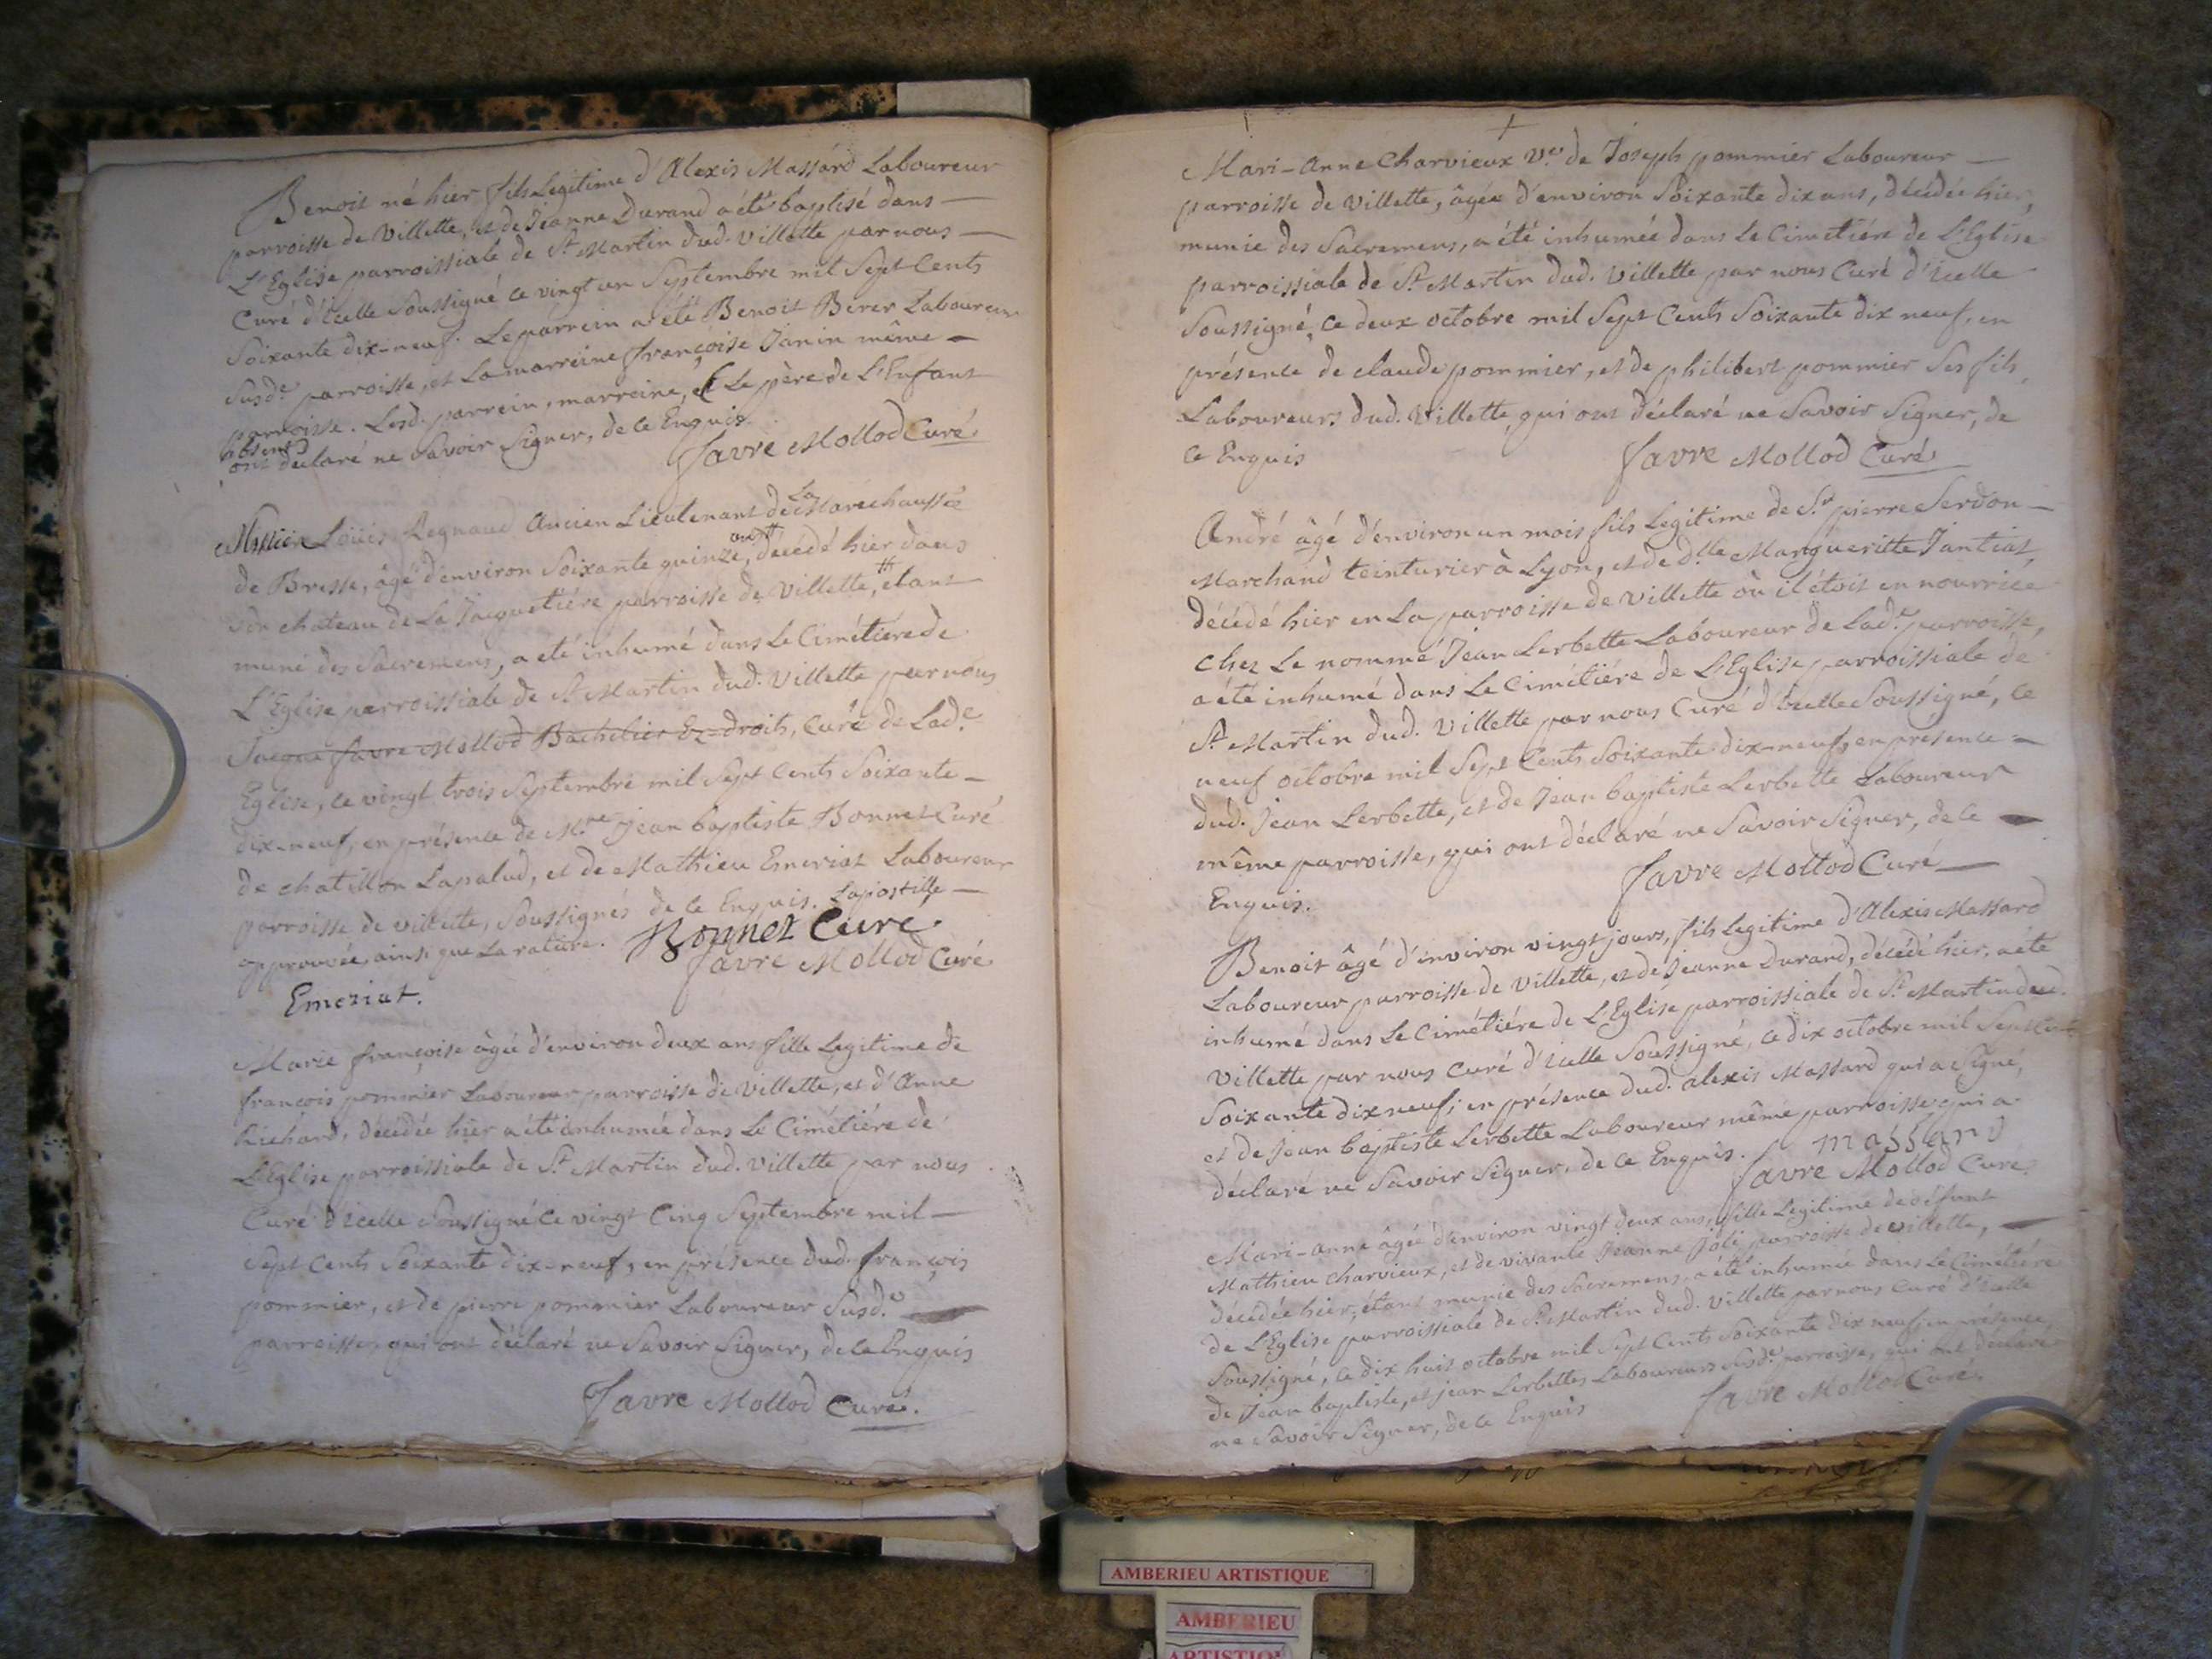 Benoit né hier fils Legitime d'Alexis Massard Laboureur
parroisse de Villette, et de Jeanne Durand a été baptisé dans
L'Eglise parroissiale de St Martin dud. Villette par nous
Curé d'icelle Soussigné ce vingt un Septembre mil Sept Cents
Soixante dix-neuf. Le parrein a été Benoit Birer Laboureur
Susde. parroisse, et La marreine françoise Janin même
parroisse. Lesd. parrein, marreine, et Le père de L'Enfant
absent
ont déclaré ne Savoir Signer, de ce Enquis.
Favre Mollod Curé
Messire Loüis Regnaud Ancien Lieutenant de La Maréchaussée
de Bresse, âgé d'environ Soixante quinze ans, décédé hier dans
Son chateau de La Jacquetiére parroisse de Villette, # étant
muni des Sacremens, a été inhumé dans Le Cimétiére de
L'Eglise parroissiale de St Martin dud. Villette par nous
Jacque favre Mollod Bachelier Ez-droits, Curé de Lade.
Eglise, ce vingt trois Septembre mil Sept Cents Soixante
dix-neuf, en présence de Mre. Jean baptiste Bonnet Curé
de chatillon Lapalud, et de Mathieu Emeriat Laboureur
parroisse de villette, Soussignés de ce Enquis. Lapostille
approuvée, ainsi que La rature. Bonnet Curé.
Favre Mollod Curé
Emeriat.
Marie françoise âgée d'environ deux ans fille Legitime de
francois pommier Laboureur parroisse de Villette, et d'Anne
Richard, décédée hier a été inhumée dans Le Cimétiére de
L'Eglise parroissiale de St Martin dud. Villette par nous
Curé d'icelle Soussigné ce vingt Cinq Septembre mil
Sept Cents Soixante dix-neuf, en présence dud. françois
pommier, et de pierre pommier Laboureur Susde.
parroisse, qui ont déclaré ne Savoir Signer, de ce Enquis
Favre Mollod Curé.
Mari-Anne Charvieux Ve. de Joseph pommier Laboureur
parroisse de Villette, âgée d'environ Soixante dix ans, décédée hier,
munie des Sacremens, a été inhumée dans Le Cimetiére de L'Eglise
parroissiale de St. Martin dud. Villette par nous Curé d'icelle
Soussigné, ce deux octobre mil Sept Cents Soixante dix neuf, en
présence de claude pommier, et de philibert pommier Ses fils,
Laboureurs dud. Villette, qui ont déclaré ne Savoir Signer, de
ce Enquis
Favre Mollod Curé
André âgé d'environ un mois fils Legitime de Sr. pierre Serdon
Marchand teinturier à Lyon, et de dlle Margueritte Jantiat,
décédé hier en La parroisse de Villette où il étoit en nourrice
chez Le nommé Jean Lerbette Laboureur de Lade. parroisse,
a été inhumé dans Le Cimétiére de L'Eglise parroissiale de
St Martin dud. Villette par nous Curé d'icelle Soussigné, ce
neuf octobre mil Sept Cents Soixante dix-neuf, en présence
dud. Jean Lerbette, et de Jean baptiste Lerbette Laboureur
même parroisse, qui ont déclaré ne Savoir Signer, de ce
Enquis.
Favre Mollod Curé
Benoit âgé d'environ vingt jours, fils Legitime d'Alexis Massard
Laboureur parroisse de Villette, et de Jeanne Durand, décédé hier, a été
inhumé dans Le Cimétiére de L'Eglise parroissiale de St. Martin dud.
Villette par nous Curé d'icelle Soussigné, ce dix octobre mil Sept Cents
Soixante dix neuf; en présence dud. alexis Massard qui a Signé,
et de Jean baptiste Lerbette Laboureur même parroisse qui a
déclaré ne Savoir Signer, de ce Enquis.
massard
Favre Mollod Curé
Mari-anne âgée d'environ vingt deux ans, fille Legitime de défunt
Mathieu Charvieux, et de vivante Jeanne Joli parroisse de villette,
décédée hier, étant munie des Sacremens, a été inhumée dans Le Cimétiére
de L'Eglise parroissiale de St. Martin dud. Villette par nous Curé d'icelle
Soussigné, ce dix huit octobre mil Sept Cents Soixante dix neuf, en présence
de Jean baptiste, et jean Lerbettes Laboureurs Susde. parroisse, qui ont déclaré
ne Savoir Signer, de ce Enquis
Favre Mollod Curé
AMBERIEU ARTISTIQUE
AMBERIEU
ARTISTIQUE